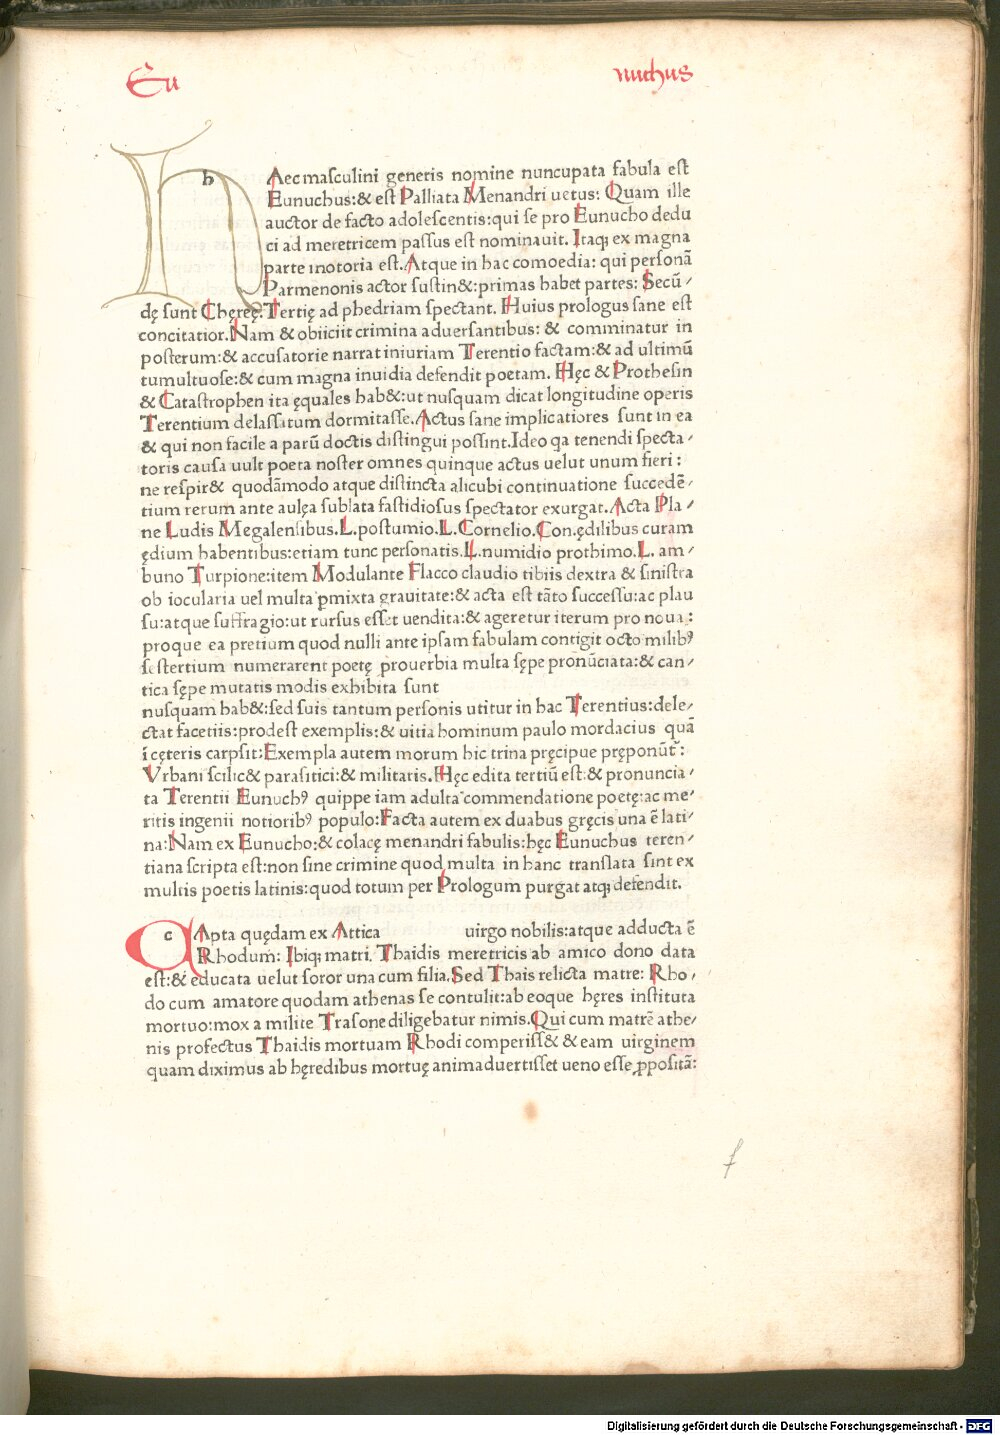 Eu nuchus
hAec masculini generis nomine nuncupata fabula est
Eunuchus:& est Palliata Menandri uetus: Quam ille
auctor de facto adolescentis:qui se pro Eunucho dedu
ci ad meretricem passus est nominauit. Itaqꝫ ex magna
parte motoria est.Atque in hac comoedia: qui personã
Parmenonis actor sustin&:primas habet partes: Secũ⸗
dę sunt Chęreę.Tertię ad phedriam spectant. Huius prologus sane est
concitatior.Nam & obiiciit crimina aduersantibus: & comminatur in
posterum:& accusatorie narrat iniuriam Terentio factam:& ad ultimũ
tumultuose:& cum magna inuidia defendit poetam. Hęc & Prothesin
& Catastrophen ita ęquales hab&:ut nusquam dicat longitudine operis
Terentium delassatum dormitasse.Actus sane implicatiores sunt in ea
& qui non facile a parũ doctis distingui possint.Ideo qa tenendi specta⸗
toris causa uult poeta noster omnes quinque actus uelut unum fieri:
ne respir& quodãmodo atque distincta alicubi continuatione succedẽ⸗
tium rerum ante aulęa sublata fastidiosus spectator exurgat.Acta Pla⸗
ne Ludis Megalensibus.L.postumio.L.Cornelio.Con.ędilibus curam
ędium habentibus:etiam tunc personatis.L.numidio prothimo.L. am⸗
buno Turpione:item Modulante Flacco claudio tibiis dextra & sinistra
ob iocularia uel multa ꝑmixta grauitate:& acta est tãto successu:ac plau
su:atque suffragio:ut rursus esset uendita:& ageretur iterum pro noua:
proque ea pretium quod nulli ante ipsam fabulam contigit octo milibꝰ
sestertium numerarent poetę prouerbia multa sępe pronũciata:& can⸗
tica sępe mutatis modis exhibita sunt
nusquam hab&:sed suis tantum personis utitur in hac Terentius:dele⸗
ctat facetiis:prodest exemplis:& uitia hominum paulo mordacius quã
ĩ cęteris carpsit:Exempla autem morum hic trina pręcipue pręponũt᷑:
Vrbani scilic& parasitici:& militaris.Hęc edita tertiũ est:& pronuncia⸗
ta Terentii Eunuchꝰ quippe iam adulta commendatione poetę:ac me⸗
ritis ingenii notioribꝰ populo:Facta autem ex duabus gręcis una ẽ lati⸗
na:Nam ex Eunucho:& colacę menandri fabulis:hęc Eunuchus teren⸗
tiana scripta est:non sine crimine quod multa in hanc translata sint ex
multis poetis latinis:quod totum per Prologum purgat atqꝫ defendit.
cApta quędam ex Attica uirgo nobilis:atque adducta ẽ
Rhodum: Ibiqꝫ matri. Thaidis meretricis ab amico dono data
est:& educata uelut soror una cum filia.Sed Thais relicta matre: Rho⸗
do cum amatore quodam athenas se contulit:ab eoque hęres instituta
mortuo:mox a milite Trasone diligebatur nimis.Qui cum matrẽ athe⸗
nis profectus Thaidis mortuam Rhodi comperiss& & eam uirginem
quam diximus ab hęredibus mortuę animaduertisset ueno esse ꝓpositã:
Digitalisierung gefördert durch die Deutsche Forschungsgemeinschaft - DFG